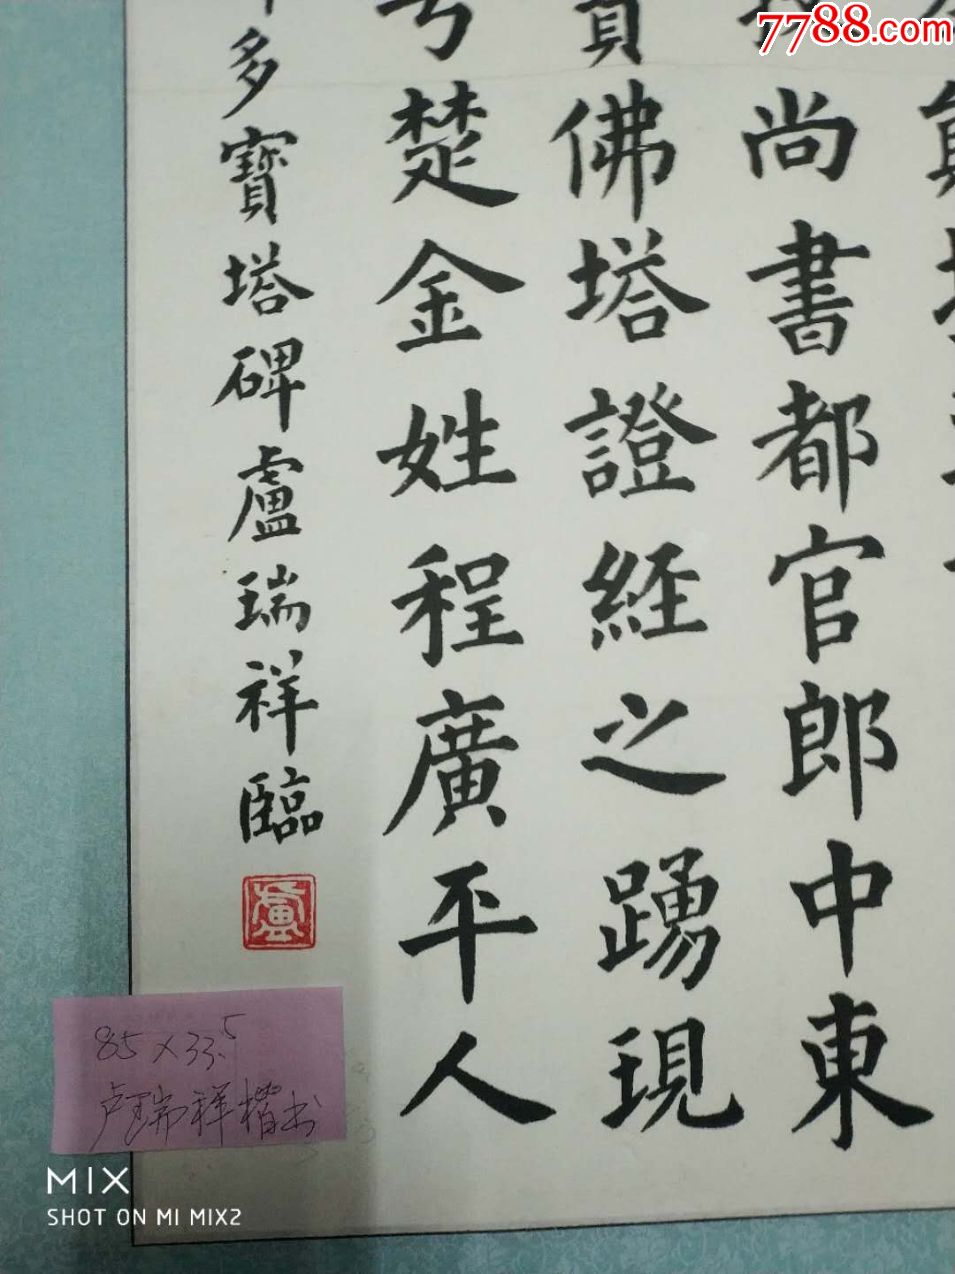 7788.com
尚書都官郎中東
佛塔證経之踴現
号楚金姓程廣平人
多寶塔碑盧瑞祥臨
盧
85×33.5
卢瑞祥楷书
MIX
SHOT ON MI MIX2